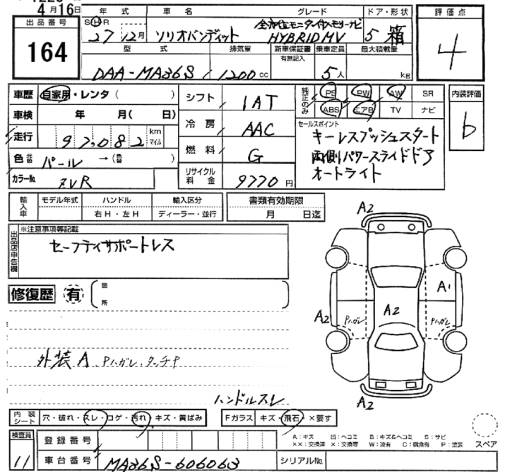 4月16日
出品番号
164
年式
S H R
27年12月
ソリオバンディット
グレード
全方位モニタ付メモリーナビ
HYBRID MV
ドア・形状
5 箱
評価点
4
型式
排気量
新車保証書
有無記入
乗車定員
最大積載量
DAA-MA36S / 1200 cc
5人
kg
車歴 自家用・レンタ( )
車検 年 月( )
走行 97,082 km マイル
色 替 パール →(替 )
カラーNo. ZVR
シフト IAT
冷房 AAC
燃料 G
リサイクル料金 9770円
純正のみ
PS PW AW SR
ABS エアB TV ナビ
セールスポイント
キーレスプッシュスタート
両側パワースライドドア
オートライト
内装評価
b
輸入車
モデル年式
ハンドル
右H・左H
輸入区分
ディーラー・並行
書類有効期限
月 日迄
出品店申告欄
※注意事項等記載
セーフティサポートレス
修復歴 有
箇所
外装A Pハガレ、タッチP
ハンドルスレ
A2
A2
A2
A1
A2
A2
Pハガレ
Pハガレ
内装シート
穴・破れ・スレ・コゲ・汚れ・キズ・黄ばみ
Fガラス キズ・飛石・×要す
A:キズ U:ヘコミ B:キズ&ヘコミ S:サビ
××:交換済 X:交換要 W:波有 C:腐食有 P:塗装
スペア
検査員
11
登録番号
車台番号
MA36S-606063
シリアルNo.